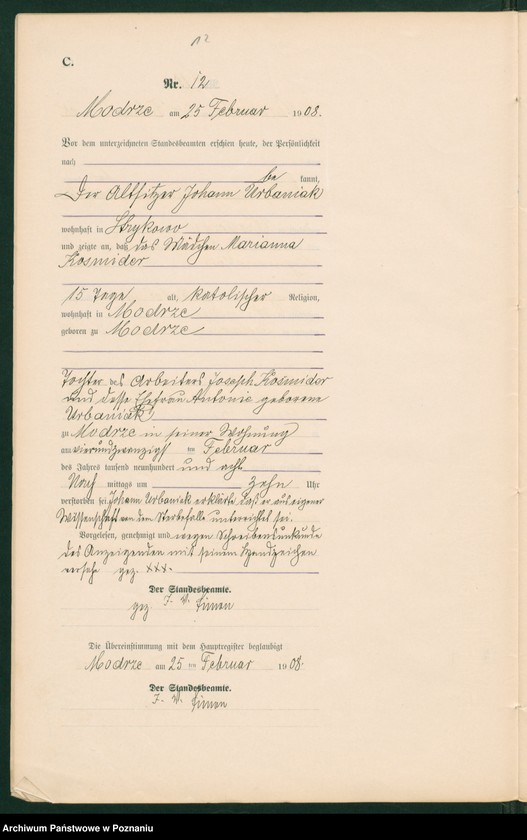 12
C.
Nr. 12
Modrze am 25 Februar 1908.
Vor dem unterzeichneten Standesbeamten erschien heute, der Persönlichkeit
nach
be kannt,
Der Altsitzer Johann Urbaniak
wohnhaft in Strykowo
und zeigte an, daß das Mädchen Marianna
Kosmider
15 Tage alt, katolischer Religion,
wohnhaft in Modrze
geboren zu Modrze
Tochter des Arbeiters Joseph Kosmider
und desse Ehefrau Antonie geborene
Urbaniak
zu Modrze in seiner Wohnung
am vierundzwanzigst ten Februar
des Jahres tausend neunhundert und acht
Nach mittags um zehn Uhr
verstorben sei. Johann Urbaniak erklärte daß er aus eigener
Wissenschaft von dem Sterbefalle unterrichtet sei.
Vorgelesen, genehmigt und wegen Schreibensunkunde
des Anzeigenden mit seinem Handzeichen
versehe gez. xxx.
Der Standesbeamte.
gez. I. V. Simon
Die Übereinstimmung mit dem Hauptregister beglaubigt
Modrze am 25 ten Februar 1908.
Der Standesbeamte.
I. V. Simon
Archiwum Państwowe w Poznaniu